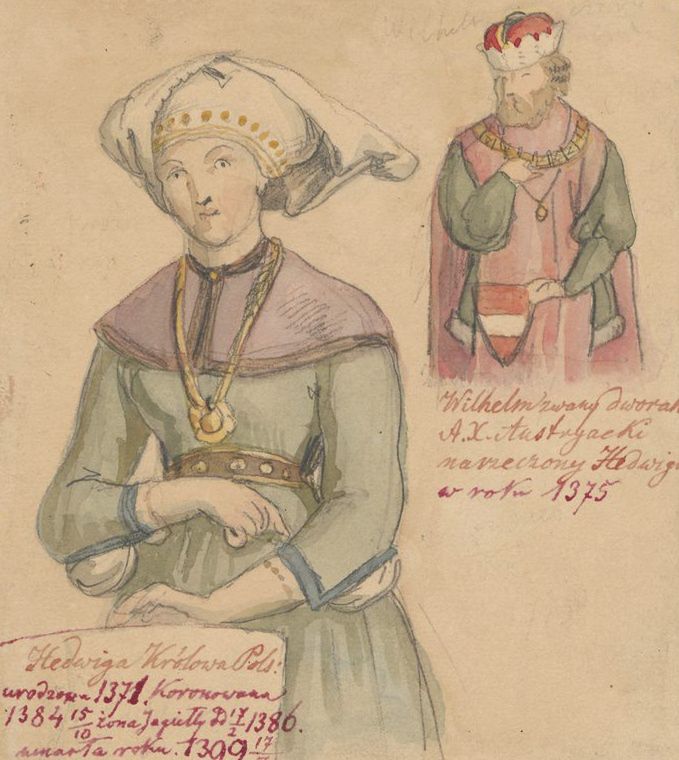 Wilhelm zwany dworak
A.X. Austryacki
narzeczony Hedwigi
w roku 1375
Hedwiga Królowa Pols:
urodzona 1371. Koronowana
1384 15/10 żona Jagiełły D 17/2 1386.
umarła roku. 1399 17